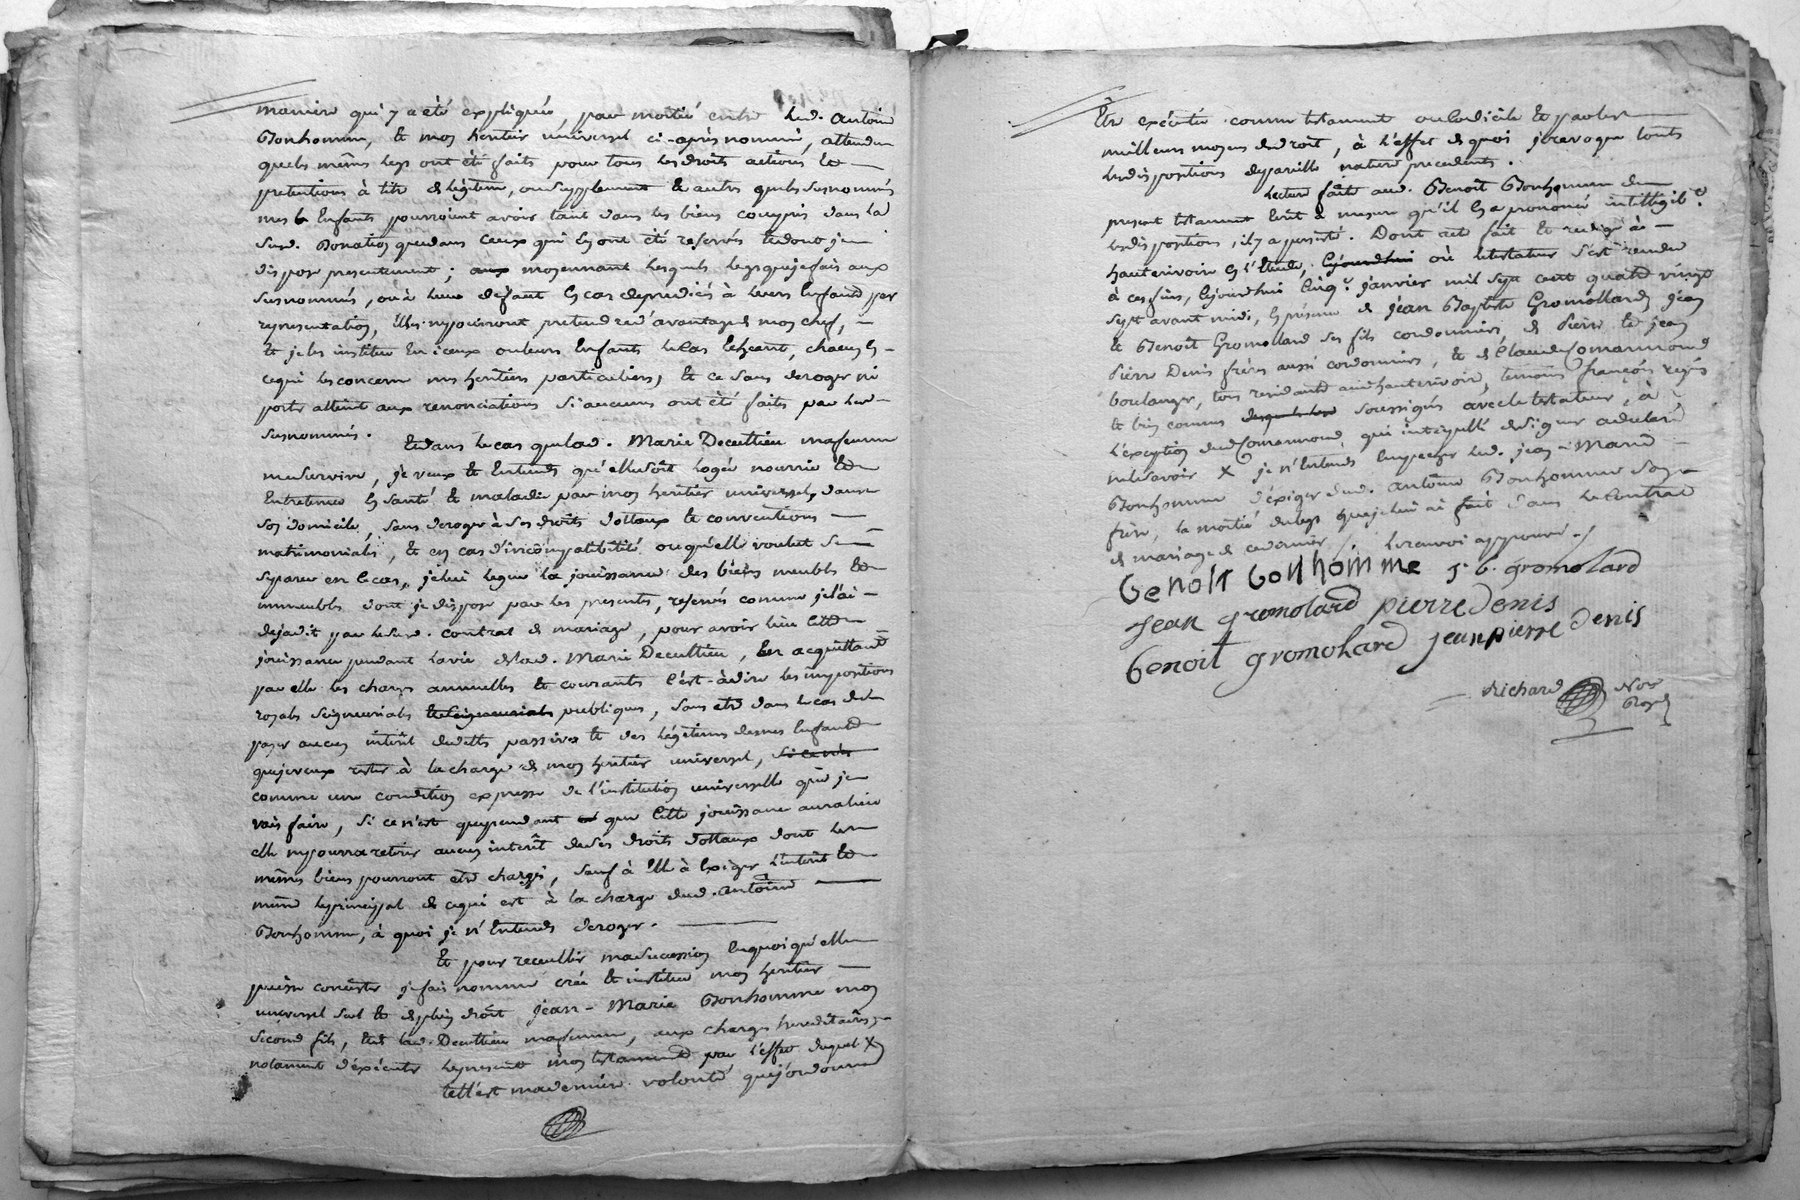 maniere qui y a été expliquée, par moitié entre led. antoine
Bonhomme, et mon heritier universel ci-après nommé, attendu
que les mêmes legs ont été faits pour tous les droits actions et
pretentions à titre de légitime, ou supplement et autres que les susnommés
mes Enfants pourroient avoir tant dans les biens compris dans la
susd. Donation que dans ceux qui En ont été reservés et dont je
dispose presentement; aux moyennant lesquels legs que je fais aux
susnommés, ou à leur défaut En cas de predécès à leurs Enfants par
representation, Elles ne pourront pretendre d'avantage de mon chef,
et je les institue En iceux ou leurs Enfants le Cas Echeant, chacun En
ce qui les concerne mes heritiers particuliers, et ce sans deroger ni
porter atteinte aux renonciations si aucunes ont été faites par les
susnommés.
Et dans le cas que lad. Marie Decultieu ma femme
me survive, je veux et Entends qu'elle soit logée nourrie et
Entretenue En santé et maladie par mon heritier universel, dans
son domicile, sans deroger à ses droits dottaux et conventions
matrimoniales, et en cas d'incompatibilité ou qu'elle voulut se
separer en ce cas, je lui legue la jouissance des biens meubles et
immeubles dont je dispose par les presentes, reservés comme je l'ai
déja dit par le susd. contrat de mariage, pour avoir lieu cette
jouissance pendant la vie de lad. Marie Decultieu, En acquittant
par elle les charges annuelles et courantes c'est-à-dire les impositions
royales seigneuriales et seigneuriales publiques, sans etre dans le cas de
payer aucun interêt des dettes passives et des légitimes de mes Enfants
que je veux rester à la charge de mon heritier universel, si ce n'est
comme une condition expresse de l'institution universelle que je
vais faire, si ce n'est que pendant que cette jouissance aura lieu
elle ne pourra retirer aucun interêt de ses droits dottaux dont les
mêmes biens pourront etre chargés, sauf à Elle à Exiger l'interêt et
même le principal de ce qui est à la charge dud. antoine
Bonhomme, à quoi je n'Entends deroger.
Et pour recueillir ma succession En quoi qu'elle
puisse consister je fais nomme crée et institue mon heritier
universel seul et de plein droit jean-Marie Bonhomme mon
second fils, Et de lad. Decultieu ma femme, aux charges hereditaires,
notament d'éxécuter le present mon testament par l'effet duquel X
tell'est ma derniere volonté que j'ordonne
Etre exécutée comme testament ou codicile et par les
meilleurs moyens de droit, à l'effet de quoi je revoque touts
les dispositions de pareille nature precedentes.
Lecture faite aud. Benoît Bonhomme du
present testament Ecrit à mesure qu'il En a prononcé intelligibt.
les dispositions, il y a persisté. Dont acte fait et redigé à
hauterivoire En l'Etude, Cejourdhui où le testateur s'est rendu
à ces fins, Cejourdhui cinq. janvier mil sept cent quatre vingt
sept avant midi, En présence de jean Baptiste Gromollard, jean
et Benoît Gromollard ses fils cordonniers, de Pierre et jean
Pierre Denis frères aussi cordonniers, et de Claude Comarmond
boulanger, tous residants aud hauterivoire, temoins françois regis
et bien connus desquels les soussignés avec le testateur, à
l'exception dud Comarmond, qui interpellé de signer a declaré
ne le savoir X je n'Entends Empecher led. jean-Marie
Bonhomme d'éxiger dud. antoine Bonhomme son
frere, la moitié du legs que je lui ai fait dans le Contrat
de mariage de ce dernier / le renvoi approuvé. /
benoit bonhomme j. b. gromolard
jean gromolard pierre denis
benoit gromolard jean pierre denis
Richard Nore
Royal